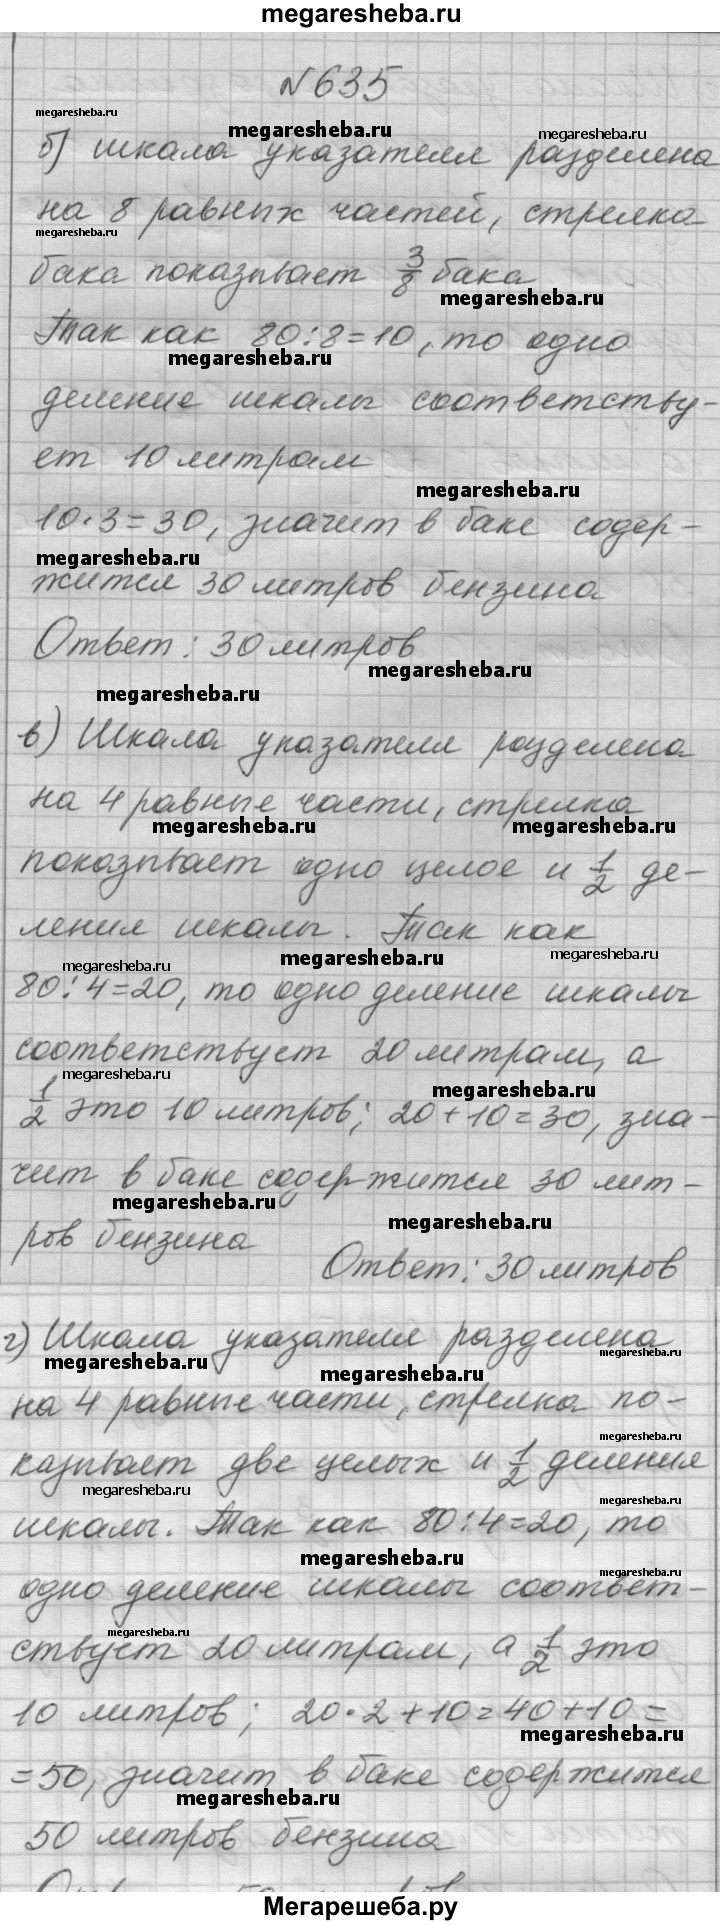 megaresheba.ru
№635
megaresheba.ru megaresheba.ru megaresheba.ru
б) шкала указателя разделена
на 8 равных частей, стрелка
megaresheba.ru
бака показывает 3/8 бака
megaresheba.ru
Так как 80:8=10, то одно
megaresheba.ru
деление шкалы соответству-
ет 10 литрам
megaresheba.ru
10·3=30, значит в баке содер-
megaresheba.ru
жится 30 литров бензина
Ответ: 30 литров
megaresheba.ru
megaresheba.ru
в) Шкала указателя разделена
на 4 равные части, стрелка
megaresheba.ru megaresheba.ru
показывает одно целое и 1/2 де-
ления шкалы. Так как
megaresheba.ru megaresheba.ru megaresheba.ru
80:4=20, то одно деление шкалы
соответствует 20 литрам, а
megaresheba.ru megaresheba.ru
1/2 это 10 литров; 20+10=30, зна-
чит в баке содержится 30 лит-
megaresheba.ru megaresheba.ru
ров бензина
Ответ: 30 литров
г) Шкала указателя разделена
megaresheba.ru megaresheba.ru megaresheba.ru
на 4 равные части, стрелка по-
megaresheba.ru
казывает две целых и 1/2 деления
megaresheba.ru megaresheba.ru
шкалы. Так как 80:4=20, то
megaresheba.ru megaresheba.ru
одно деление шкалы соответ-
megaresheba.ru megaresheba.ru
ствует 20 литрам, а 1/2 это
10 литров; 20·2+10=40+10=
megaresheba.ru
=50, значит в баке содержится
megaresheba.ru
50 литров бензина
Мегарешеба.ру